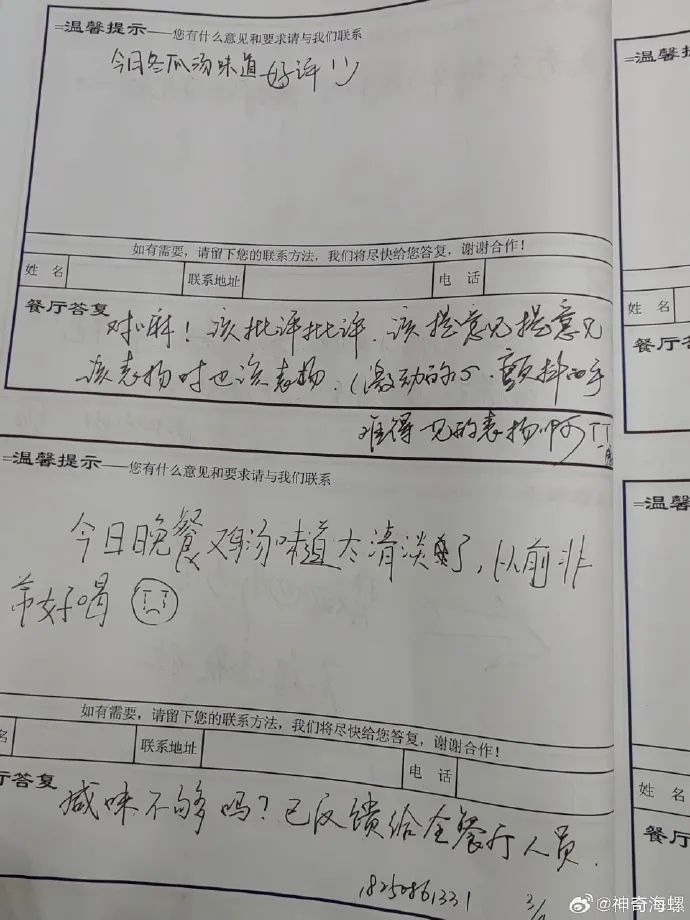 温馨提示——您有什么意见和要求请与我们联系
今日冬瓜汤味道好评!!
如有需要，请留下您的联系方法，我们将尽快给您答复，谢谢合作！
姓 名 联系地址 电 话
餐厅答复
对嘛！该批评批评．该提意见提意见
该表扬时也该表扬．(激动的心．颤抖的手
难得一见的表扬啊TT
温馨提示——您有什么意见和要求请与我们联系
今日晚餐鸡汤味道太清淡了，以前非
常好喝
如有需要，请留下您的联系方法，我们将尽快给您答复，谢谢合作！
名 联系地址 电 话
厅答复
咸味不够吗？已反馈给全餐厅人员．
18250861331
温馨提
姓 名
餐厅答
温馨
姓 名
餐厅
@神奇海螺